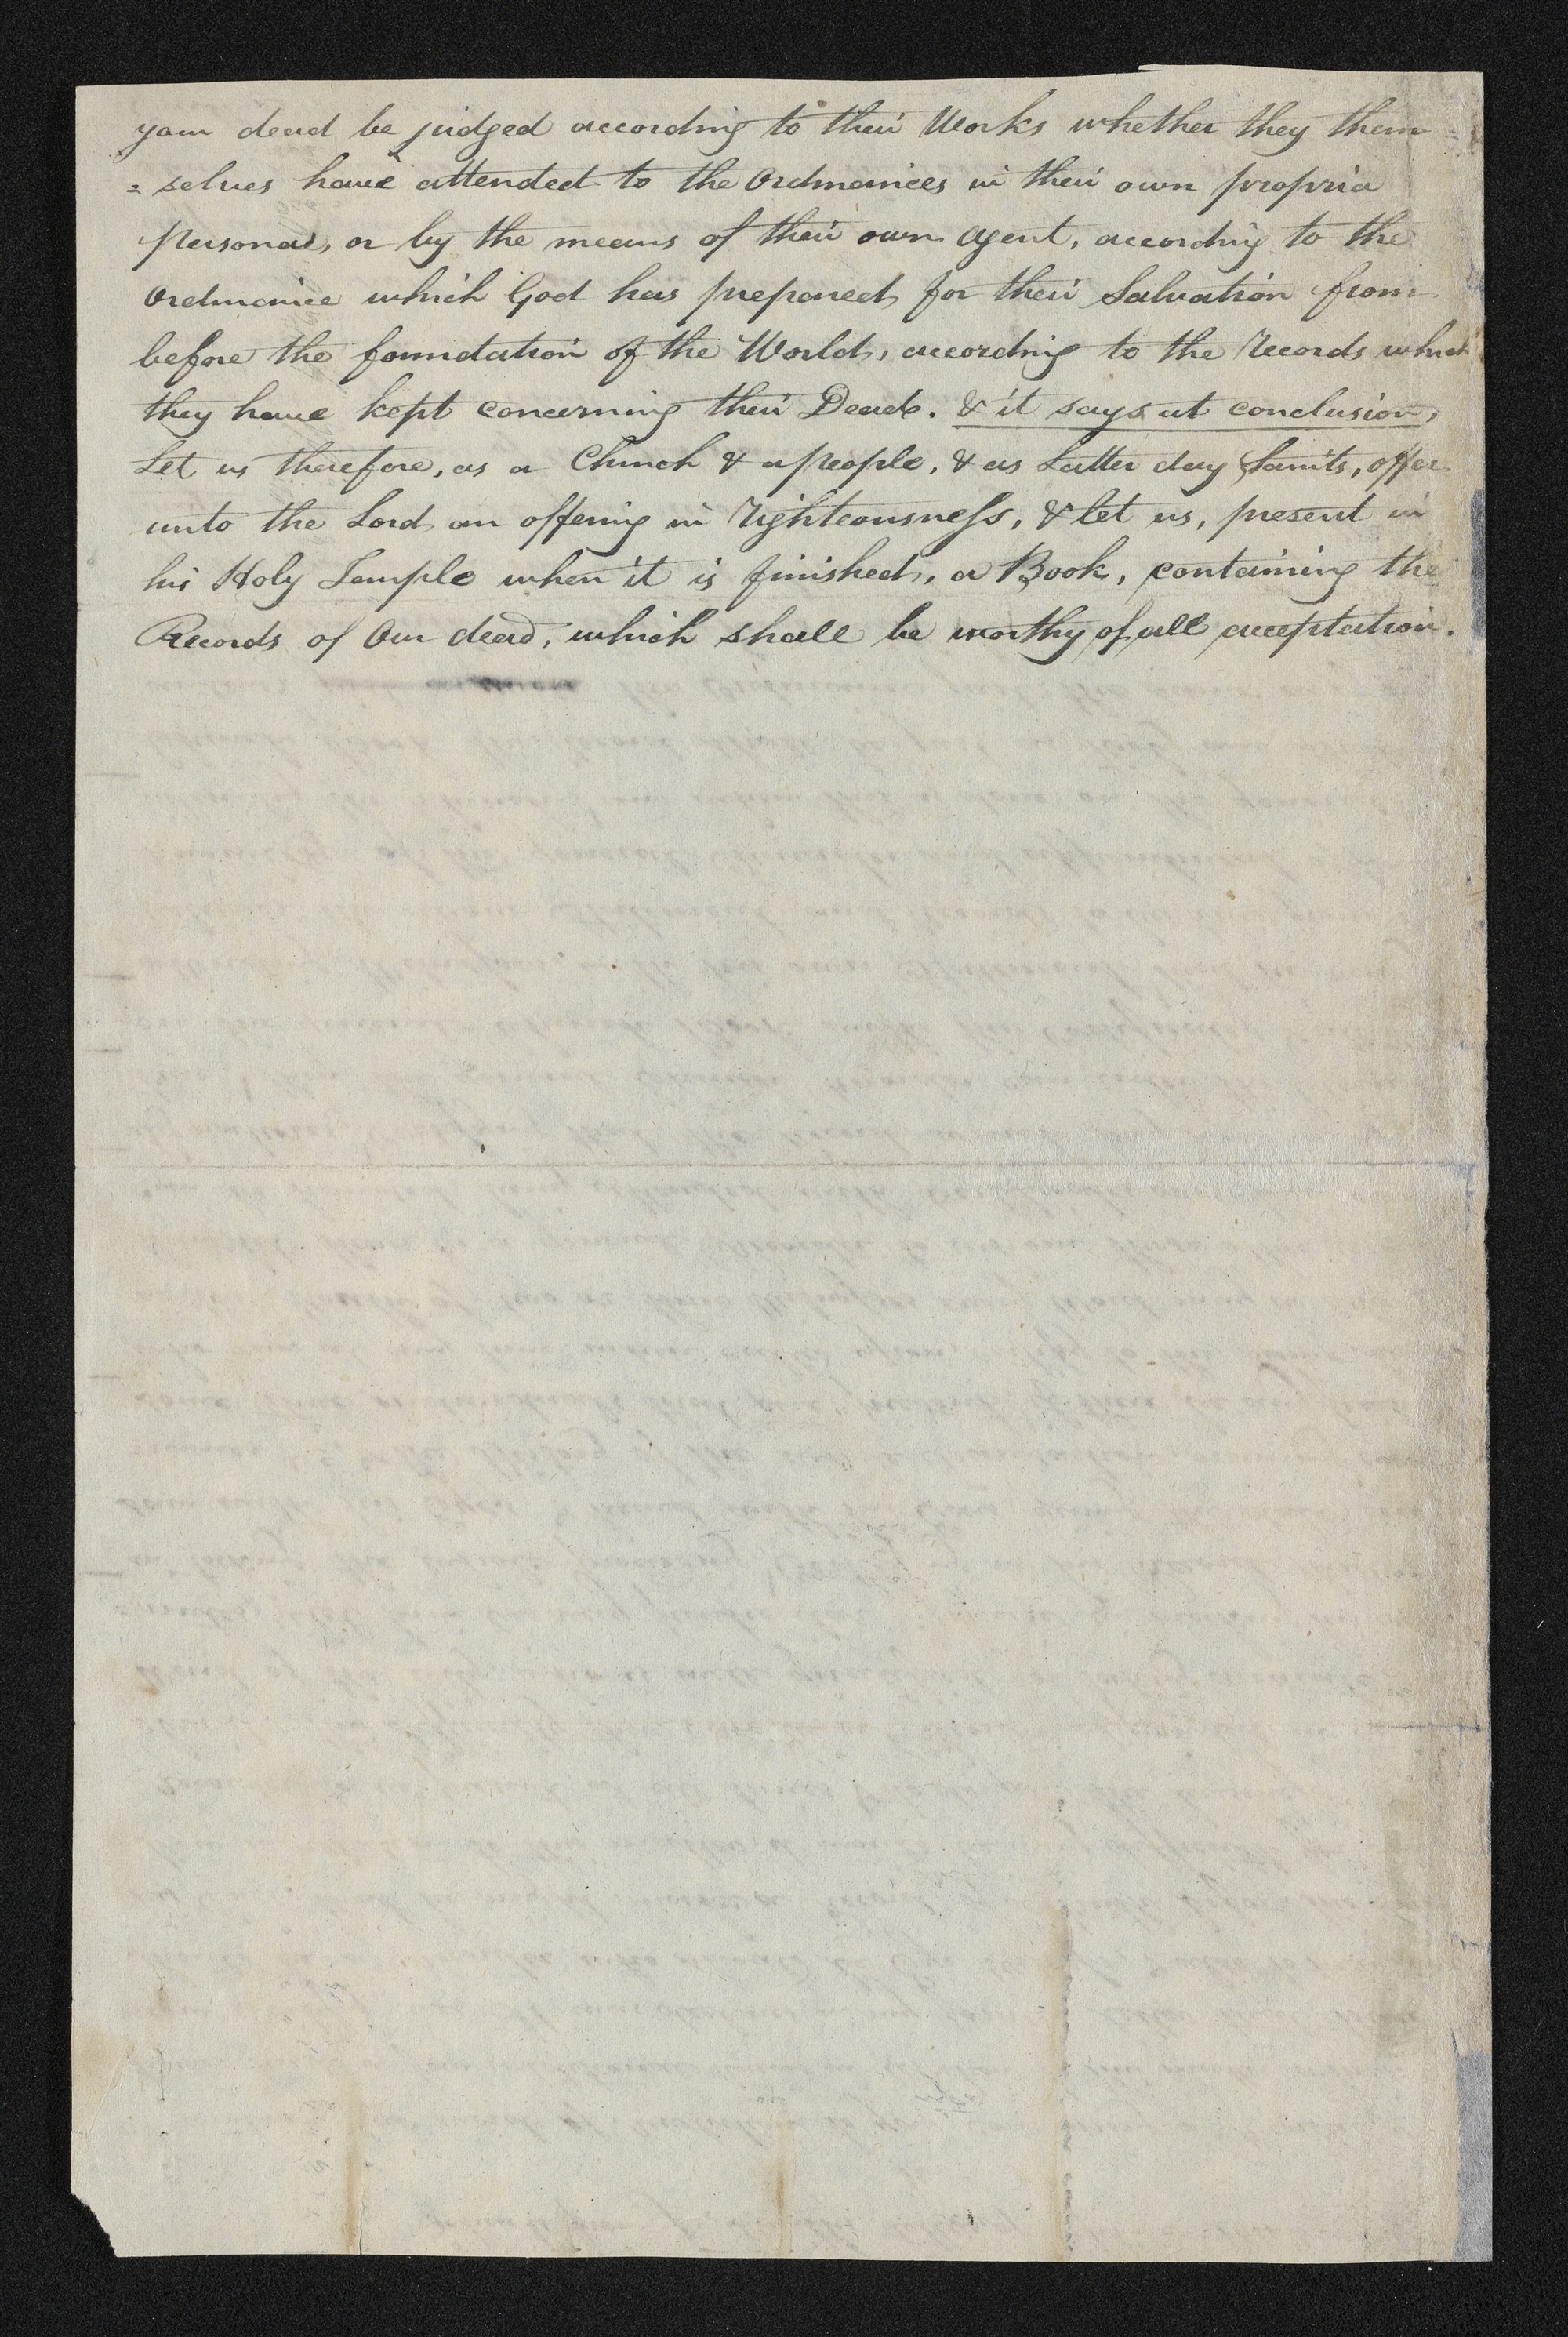 your dead be judged according to their Works whether they them
= selves have attended to the Ordinances in their own propria
persona, or by the means of their own agent, according to the
Ordinance which God has prepared for their Salvation from
before the foundation of the World, according to the Records which
they have kept concerning their Dead. & it says at conclusion,
Let us therefore, as a Church & a people, & as Latter day Saints, offer
unto the Lord an offering in righteousness, & let us, present in
his Holy Temple when it is finished, a Book, containing the
Records of Our dead, which shall be worthy of all acceptation.